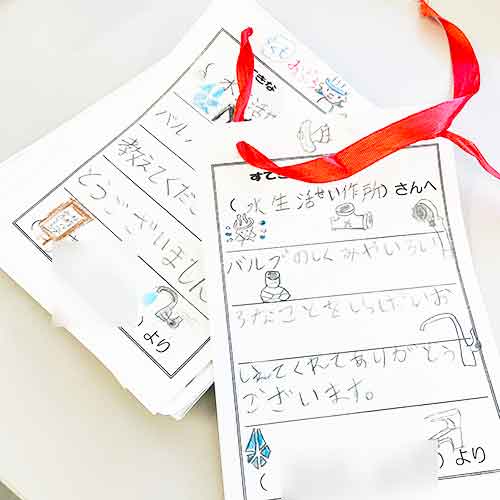 すてき
(水生活せい作所)さんへ
バルブのしくみやいろい
ろなことをしらばいお
しえてくれてありがとう
ございます。
( )より
すてきな
(水 活せ
バル
教えてくださ
とうございました
)より